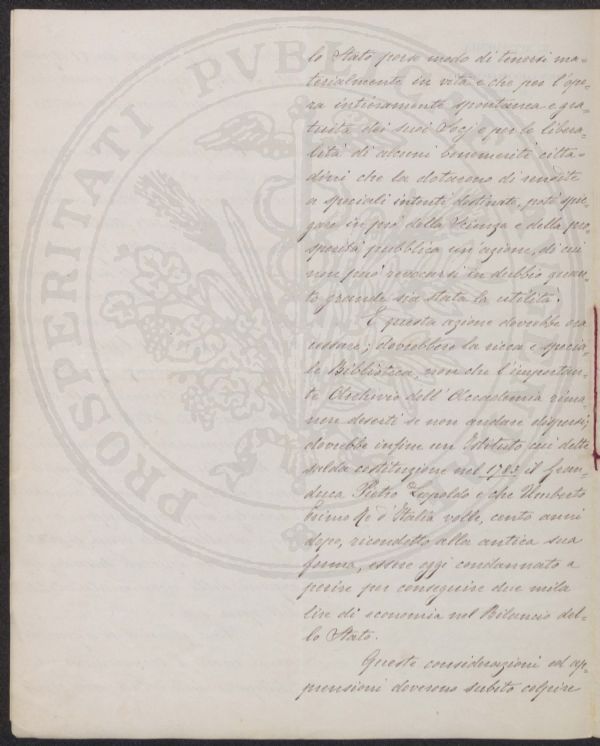 lo Stato porse modo di tenersi ma-
terialmente in vita e che per l'ope-
ra intieramente spontanea e gra-
tuita dei suoi Socj e per le libera-
lità di alcuni benemeriti citta-
dini che la dotarono di rendite
a speciali intenti destinate, potè spie-
gare in pro' della Scienza e della pro-
sperità pubblica un'azione, di cui
non può revocarsi in dubbio quan-
to grande sia stata la utilità.
E questa azione dovrebbe ora
cessare; dovrebbero la ricca e specia-
le Biblioteca, non che l'importan-
te Archivio dell'Accademia rima-
ner deserti se non andare dispersi;
dovrebbe infine un Istituto cui dette
salda costituzione nel 1783 il Gran-
duca Pietro Leopoldo e che Umberto
Primo Re d'Italia volle, cento anni
dopo, ricondotto alla antica sua
forma, essere oggi condannato a
perire per conseguire due mila
lire di economia nel Bilancio del-
lo Stato.
Queste considerazioni ed ap-
prensioni doverono subito colpire
PROSPERITATI PVBL